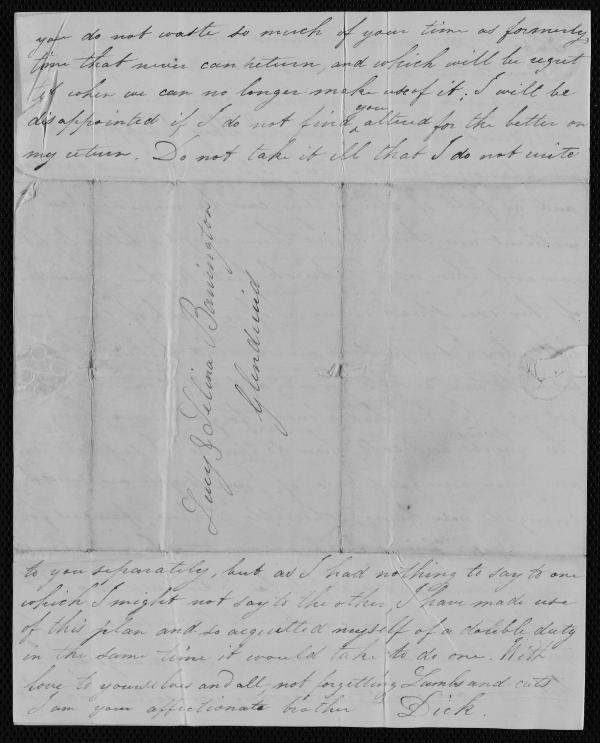 you do not waste so much of your time as formerly,
time that never can return, and which will be regret
ted when we can no longer make use of it; I will be
disappointed if I do not find you altered for the better on
my return. Do not take it ill that I do not write
Lucy & Selina Barrington
Glendruid
to you separately, but as I had nothing to say to one
which I might not say to the other, I have made use
of this plan and so acquitted myself of a double duty
in the same time it would take to do one. With
love to yourselves and all, not forgetting Lambs and cats
I am your affectionate brother Dick.